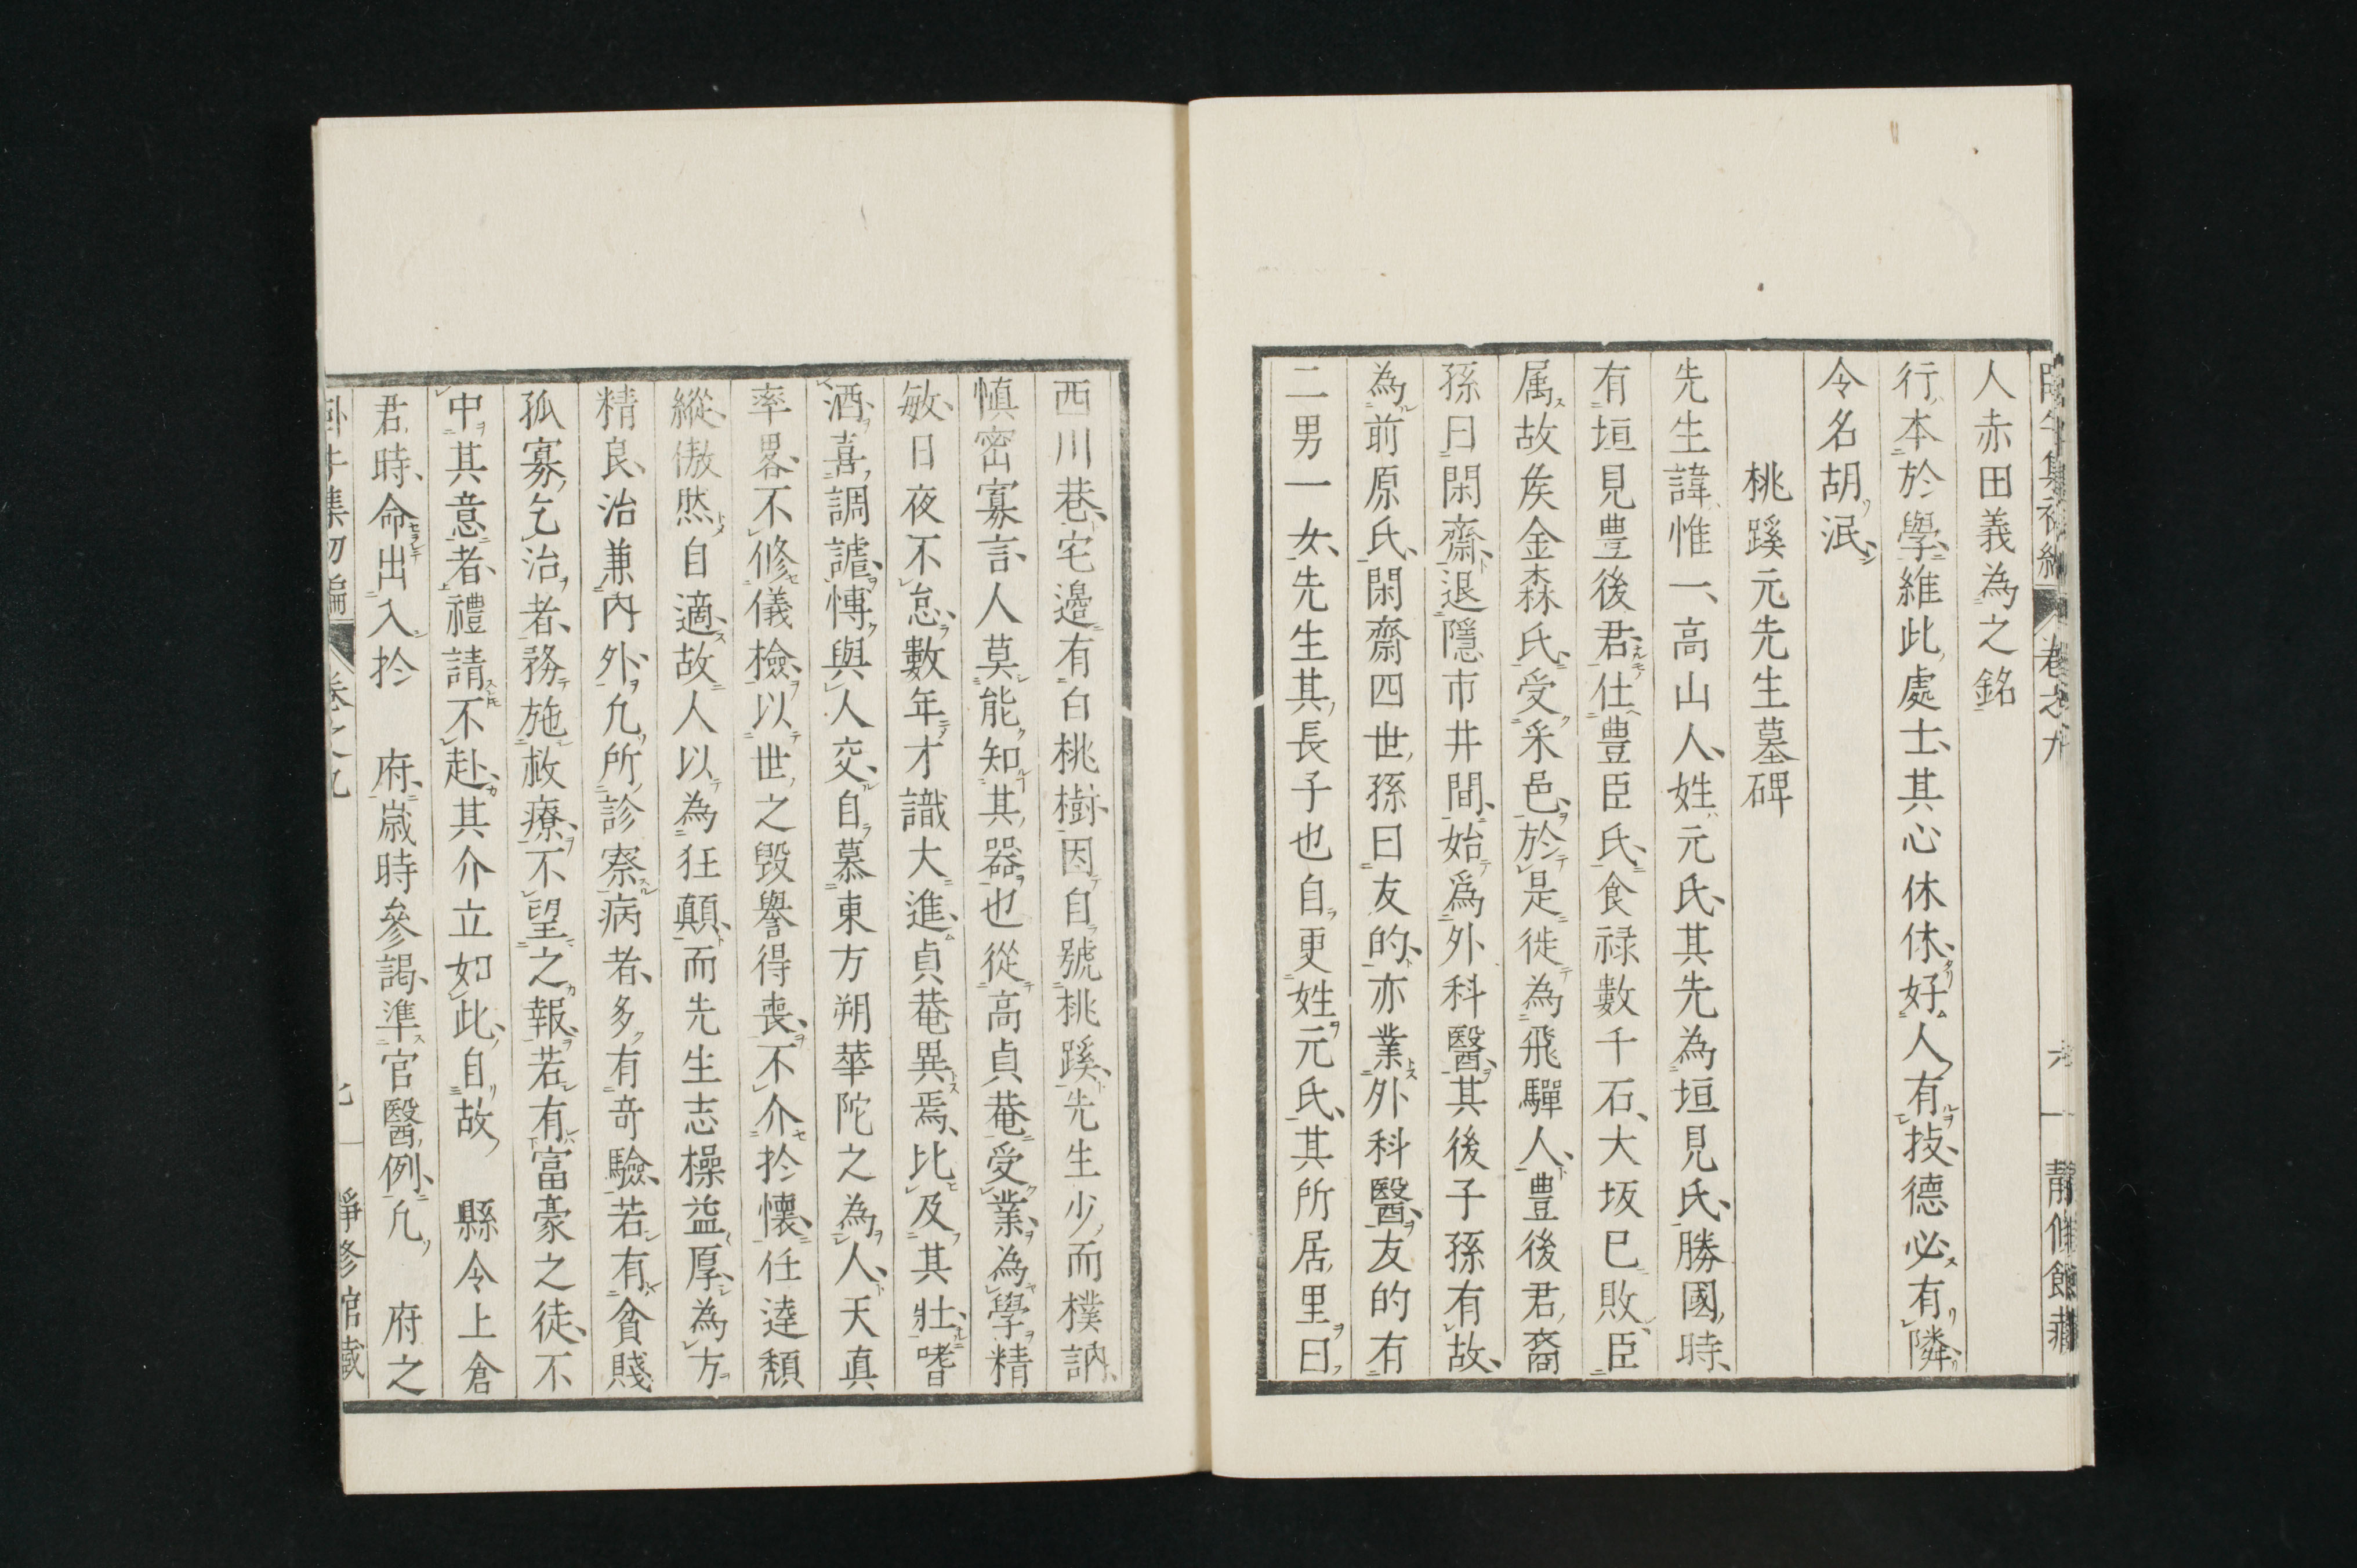 人赤田義為之銘
行本於學維此處士其心休休好人有技德必有隣
令名胡泯
桃蹊元先生墓碑
先生諱惟一高山人姓元氏其先為垣見氏勝國時
有垣見豊後君仕豊臣氏食禄數千石大坂已敗臣
属故矦金森氏受采邑於是徙為飛驒人豊後君裔
孫曰閑齋退隱市井間始爲外科醫其後子孫有故
為前原氏閑齋四世孫曰友的亦業外科醫友的有
二男一女先生其長子也自更姓元氏其所居里曰
西川巷宅邉有白桃樹因自號桃蹊先生少而樸訥
慎密寡言人莫能知其器也從高貞菴受業為學精
敏日夜不怠數年才識大進貞菴異焉比及其壯嗜
酒喜調謔慱與人交自慕東方朔華陀之為人天真
率畧不修儀檢以世之毀譽得喪不介扵懷任達頹
縱傲然自適故人以為狂顛而先生志操益厚為方
精良治兼內外允所診察病者多有奇驗若有貧賤
孤寡乞治者務施救療不望之報若有富豪之徒不
中其意者禮請不赴其介立如此自故 縣令上倉
君時命出入扵 府歳時參謁準官醫例允 府之
卧牛集初編 卷之九 靜修館藏